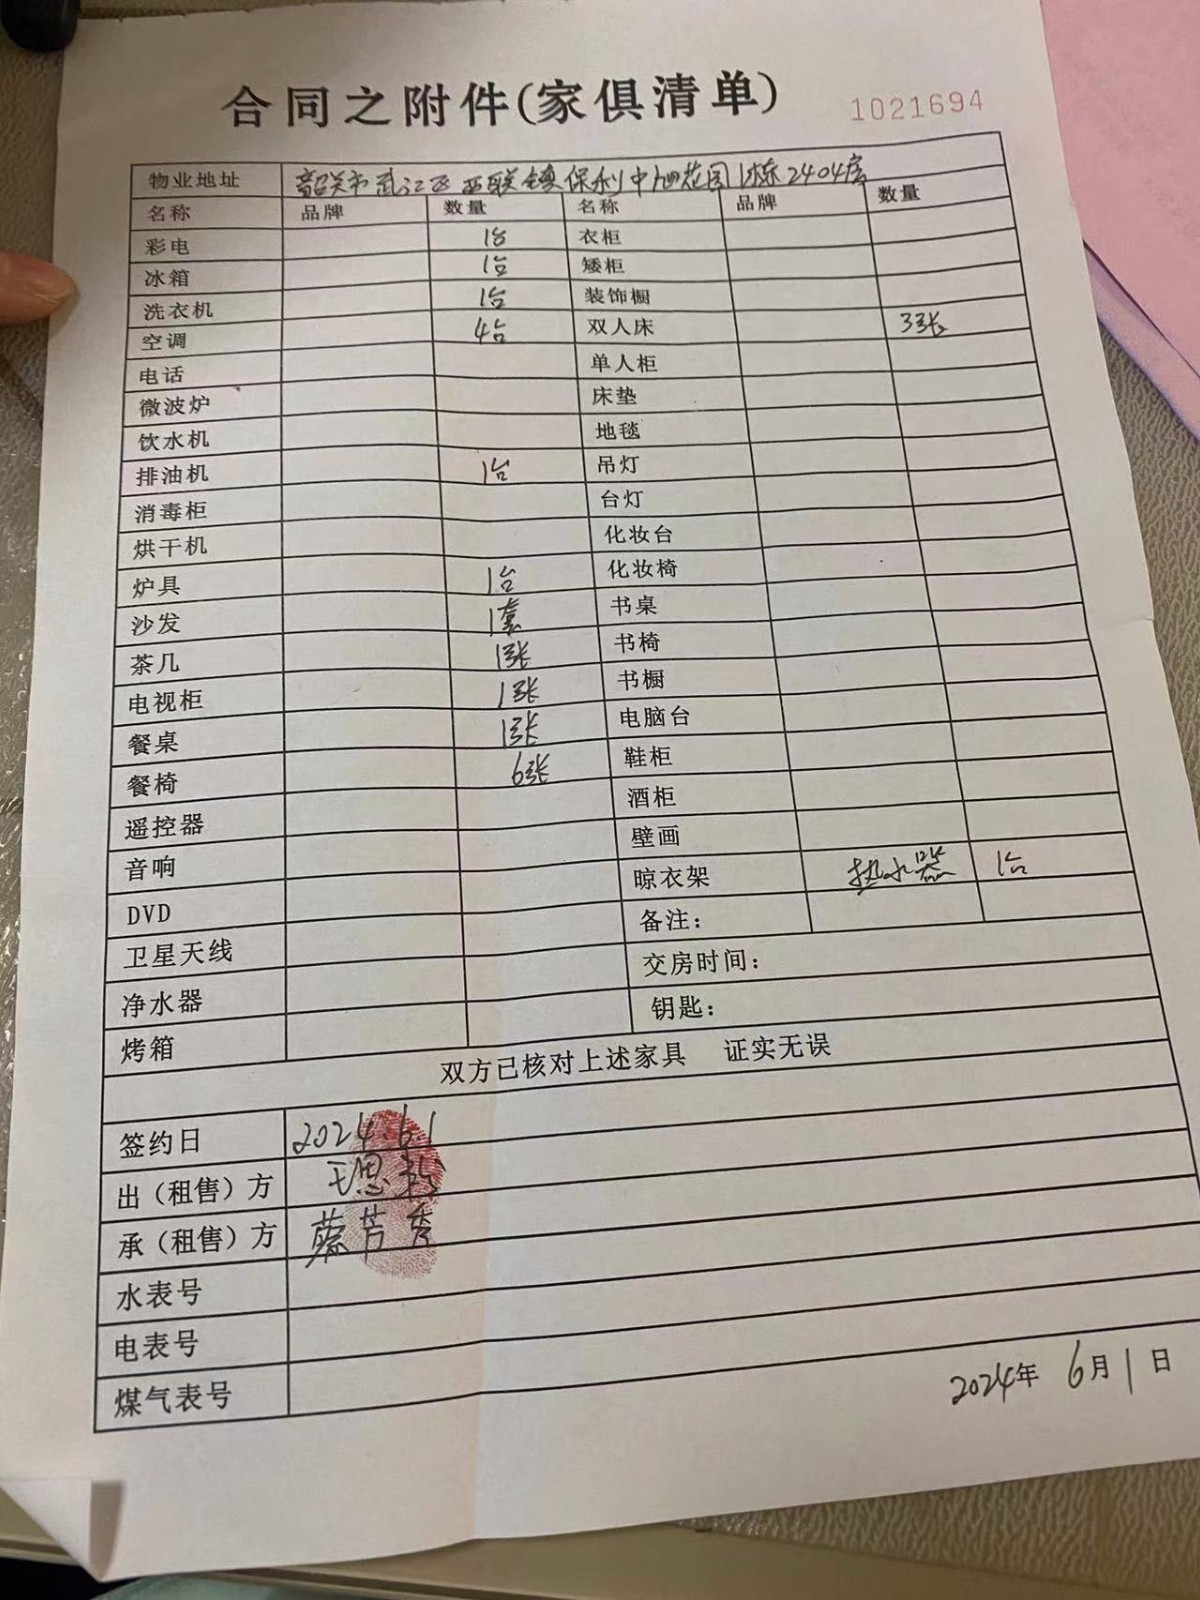 合同之附件(家俱清单) 1021694
物业地址 韶关市武江区西联镇保利中心花园1栋2404房
名称 品牌 数量 名称 品牌 数量
彩电 1台 衣柜
冰箱 1台 矮柜
洗衣机 1台 装饰橱
空调 4台 双人床 3张
电话 单人柜
微波炉 床垫
饮水机 地毯
排油机 1台 吊灯
消毒柜 台灯
烘干机 化妆台
炉具 1台 化妆椅
沙发 1套 书桌
茶几 1张 书椅
电视柜 1张 书橱
餐桌 1张 电脑台
餐椅 6张 鞋柜
遥控器 酒柜
音响 壁画
DVD 晾衣架 热水器 1台
卫星天线 备注：
净水器 交房时间：
烤箱 钥匙：
双方已核对上述家具 证实无误
签约日 2024.6.1
出（租售）方 王思
承（租售）方 秀
水表号
电表号
煤气表号
2024年 6月1日